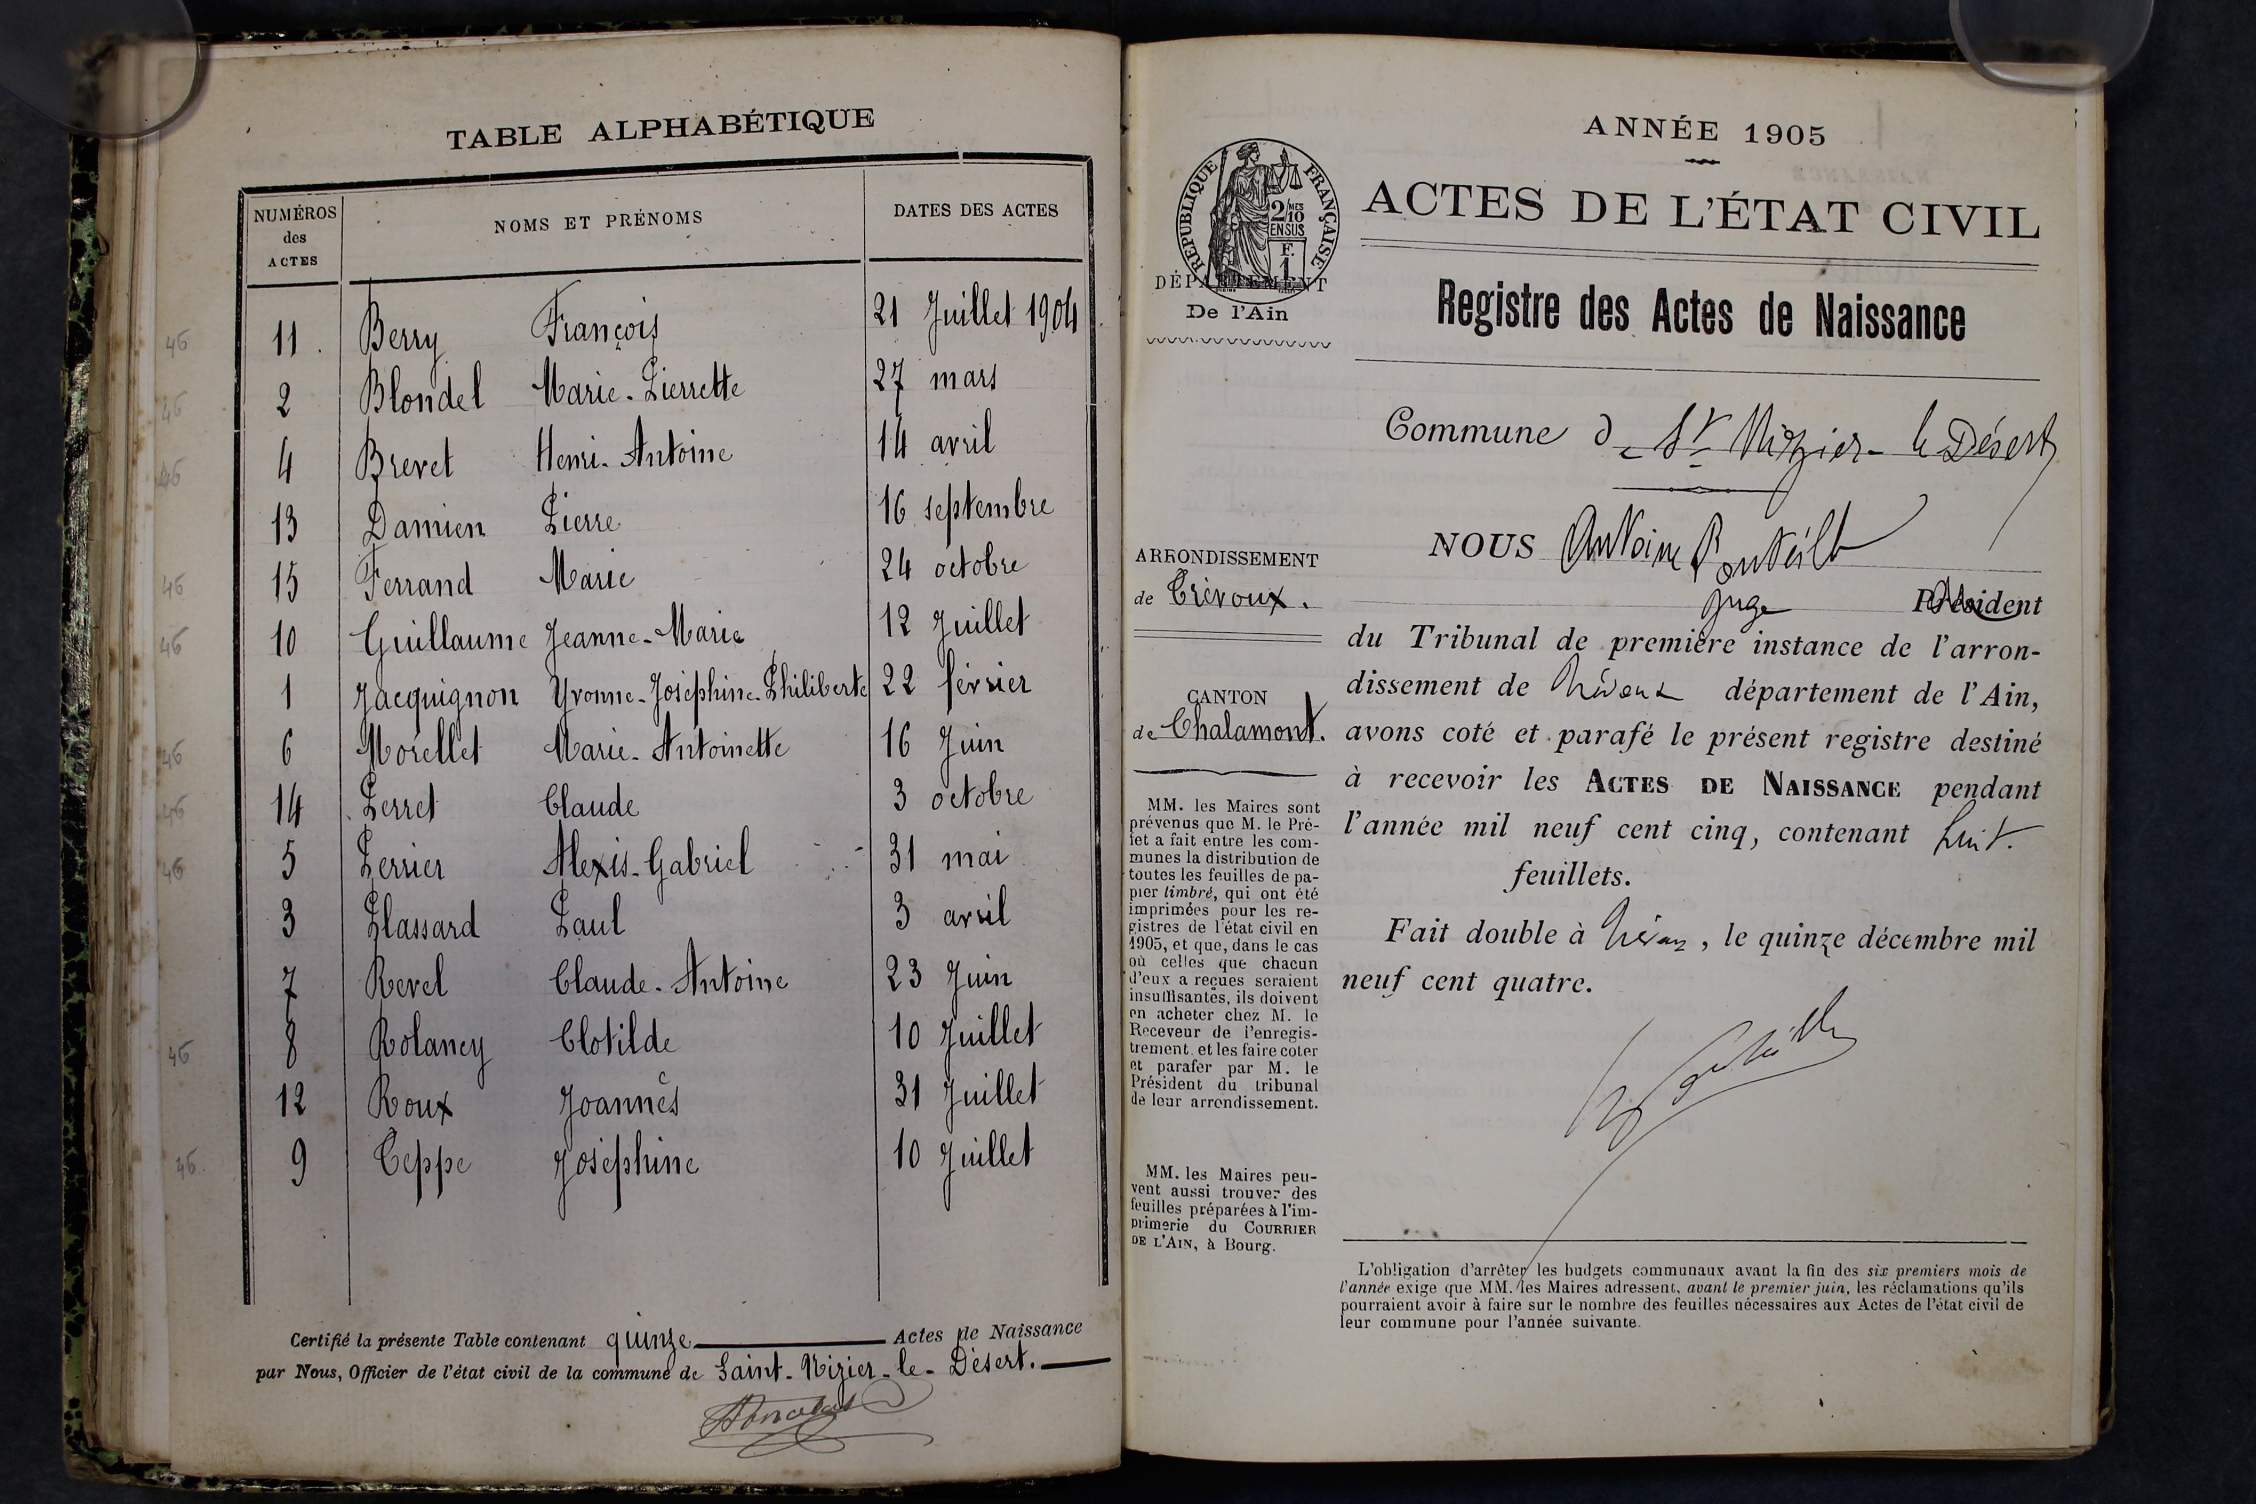 TABLE ALPHABÉTIQUE
NUMÉROS des ACTES NOMS ET PRÉNOMS DATES DES ACTES
46 11 Berry François 21 Juillet 1904
46 2 Blondel Marie-Pierrette 27 mars
46 4 Brevet Henri-Antoine 14 avril
13 Damien Pierre 16 septembre
46 15 Ferrand Marie 24 octobre
46 10 Guillaume Jeanne-Marie 12 Juillet
1 Jacquignon Yvonne-Joséphine-Philiberte 22 février
46 6 Morellet Marie-Antoinette 16 Juin
46 14 Perret Claude 3 octobre
46 5 Perrier Alexis-Gabriel 31 mai
3 Plassard Paul 3 avril
7 Revel Claude-Antoine 23 Juin
46 8 Rolancy Clotilde 10 Juillet
12 Roux Joannès 31 Juillet
46 9 Teppe Joséphine 10 Juillet
Certifié la présente Table contenant quinze Actes de Naissance
par Nous, Officier de l'état civil de la commune de Saint-Nizier-le-Désert.
ANNÉE 1905
ACTES DE L'ÉTAT CIVIL
RÉPUBLIQUE FRANÇAISE
2/10 MES
EN SUS
F.
1
DÉPARTEMENT
De l'Ain
Registre des Actes de Naissance
Commune de St Nizier-le Désert
ARRONDISSEMENT
de Trévoux.
CANTON
de Chalamont.
MM. les Maires sont
prévenus que M. le Pré-
fet a fait entre les com-
munes la distribution de
toutes les feuilles de pa-
pier timbré, qui ont été
imprimées pour les re-
gistres de l'état civil en
1905, et que, dans le cas
où celles que chacun
d'eux a reçues seraient
insuffisantes, ils doivent
en acheter chez M. le
Receveur de l'enregis-
trement et les faire coter
et parafer par M. le
Président du tribunal
de leur arrondissement.
MM. les Maires peu-
vent aussi trouver des
feuilles préparées à l'im-
primerie du COURRIER
DE L'AIN, à Bourg.
NOUS Antoine
Juge Président
du Tribunal de première instance de l'arron-
dissement de Trévoux département de l'Ain,
avons coté et parafé le présent registre destiné
à recevoir les ACTES DE NAISSANCE pendant
l'année mil neuf cent cinq, contenant huit
feuillets.
Fait double à Trévoux, le quinze décembre mil
neuf cent quatre.
L'obligation d'arrêter les budgets communaux avant la fin des six premiers mois de
l'année exige que MM. les Maires adressent, avant le premier juin, les réclamations qu'ils
pourraient avoir à faire sur le nombre des feuilles nécessaires aux Actes de l'état civil de
leur commune pour l'année suivante.